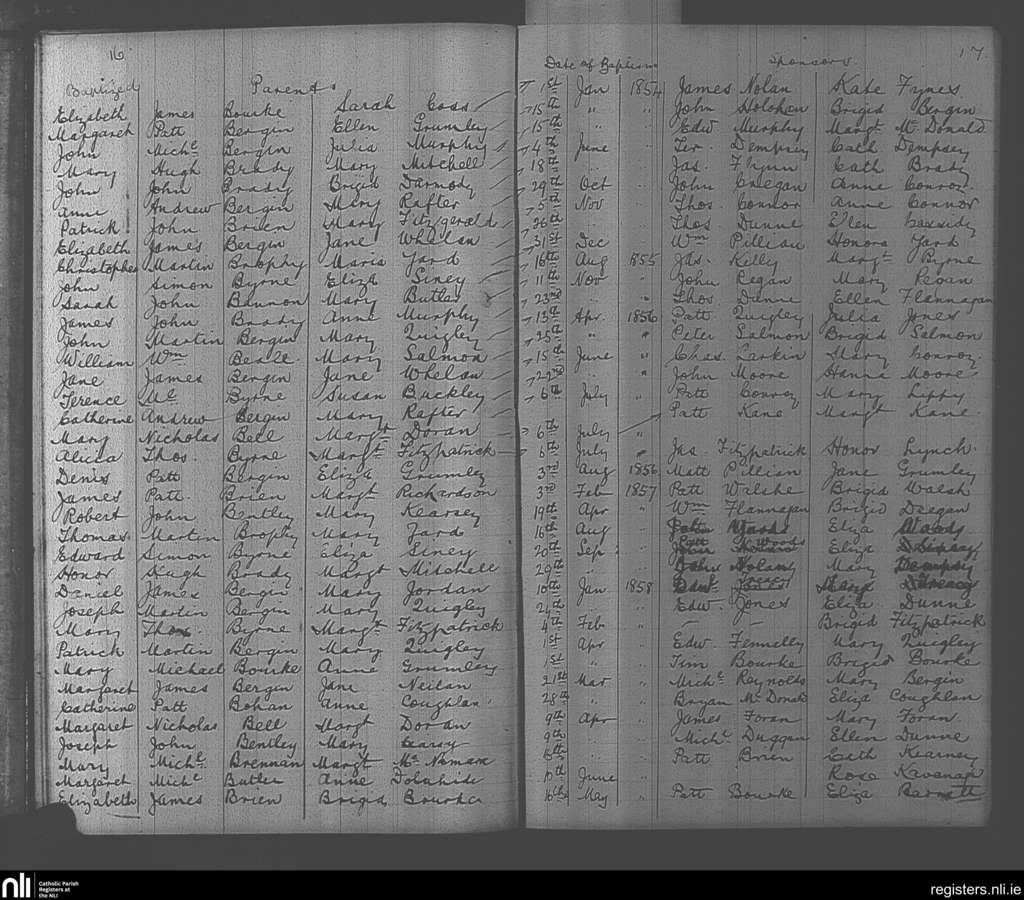 16
Baptized Parents
Elizabeth James Bourke Sarah Coss
Margaret Patt Bergin Ellen Grumley
John Michl Bergin Julia Murphy
Mary Hugh Brady Mary Mitchell
John John Brady Brigid Darmody
Anne Andrew Bergin Mary Rafter
Patrick John Brien Mary Fitzgerald
Elizabeth James Bergin Jane Whelan
Christopher Martin Brophy Maria Yard
John Simon Byrne Eliza Siney
Sarah John Bannon Mary Butler
James John Brady Anne Murphy
John Martin Bergin Mary Quigley
William Wm Beale Mary Salmon
Jane James Bergin Jane Whelan
Terence Byrne Susan Buckley
Catherine Andrew Bergin Mary Rafter
Mary Nicholas Bell Margt Doran
Alicia Thos. Byrne Margt Fitzpatrick
Denis Patt Bergin Eliza Grumley
James Patt. Brien Margt Richardson
Robert John Bentley Mary Kearsey
Thomas Martin Brophy Mary Yard
Edward Simon Byrne Eliza Siney
Honor Hugh Brady Margt Mitchell
Daniel James Bergin Mary Jordan
Joseph Martin Bergin Mary Quigley
Mary Thos. Byrne Margt Fitzpatrick
Patrick Martin Bergin Mary Quigley
Mary Michael Bourke Anne Grumley
Margaret James Bergin Jane Neilan
Catherine Patt Bohan Anne Coughlan
Margaret Nicholas Bell Margt Doran
Joseph John Bentley Mary
Mary Michl Brennan Margt McNamara
Margaret Michl Butler Anne Dohuhide
Elizabeth James Brien Brigid Bourke
17
Date of Baptism Sponsors
1st Jan 1854 James Nolan Kate Fynes
15th " " John Holohan Brigid Bergin
15th " " Edw Murphy Margt McDonald
4th June " Ter. Dempsey Cath Dempsey
18th " " Jas. Flynn Cath Brady
29th Oct " John Anne Conroy
5th Nov " Thos. Connor Anne Connor
26th " " Thos Dunne Ellen
31st Dec " Wm Pillian Honora Yard
16th Aug 1855 Jas. Kelly Margt Byrne
11th Nov " John Regan Mary
23rd " " Thos. Dunne Ellen Flannagan
13th Apr. 1856 Patt Quigley Julia Jones
25th " " Peter Salmon Brigid Salmon
15th June " Chas. Larkin Mary Conroy
29th " " John Moore Hanna Moore
6th July " Patt Conroy Mary Lippy
Patt Kane Margt Kane
6th July "
6th July " Jas. Fitzpatrick Honor Lynch
3rd Aug 1856 Matt Pillian Jane Grumley
3rd Feb 1857 Patt Walshe Brigid Walsh
19th Apr " Wm Flannagan Brigid Deegan
16th Aug " Eliza Woods
20th Sep " Patt Woods Eliza
29th " " John Nolan Mary Dempsey
10th Jan 1858
24th " " Edw. Jones Eliza Dunne
4th Feb " — — Brigid Fitzpatrick
1st Apr " Edw. Fennelly Mary Quigley
1st " " Jim Bourke Brigid Bourke
21st Mar " Michl Reynolds Mary Bergin
28th " " Bryan McDonald Eliza Coughlan
9th Apr " James Foran Mary Foran
9th " " Michl Duggan Ellen Dunne
" " Patt Brien Cath Kearney
10th June " Rose Kavanagh
16th May " Patt Bourke Eliza Barnett
nli Catholic Parish
Registers at
the NLI
registers.nli.ie